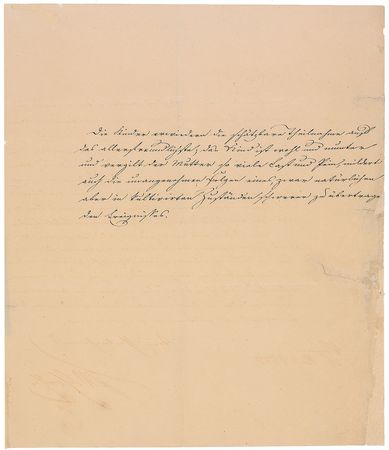 Die Kinder erwiedern die schätzbare Theilnahme aufs
des allerfreundlichste, das Kind ist wohl und munter
und vergilt der Mutter so viele Last und Pein, mildert
auch die unangenehmen Folgen eines zwar natürlichen
aber in kultivirten Zuständen schwerer zu übertragen
den Ereignisses.